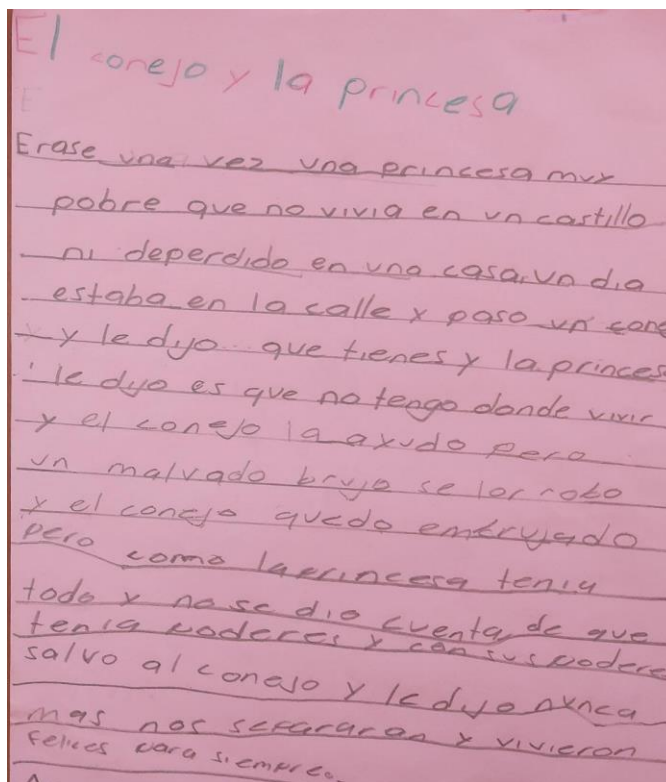 El conejo y la princesa
Erase una vez una princesa muy
pobre que no vivia en un castillo
ni deperdido en una casa, un dia
estaba en la calle y paso un cone
y le dijo que tienes y la princes
le dijo es que no tengo donde vivir
y el conejo la ayudo pero
un malvado brujo se los robo
y el conejo quedo embrujado
pero como la princesa tenia
todo y no se dio cuenta de que
tenia poderes y con sus podere
salvo al conejo y le dijo nunca
mas nos separaran y vivieron
felices para siempre.